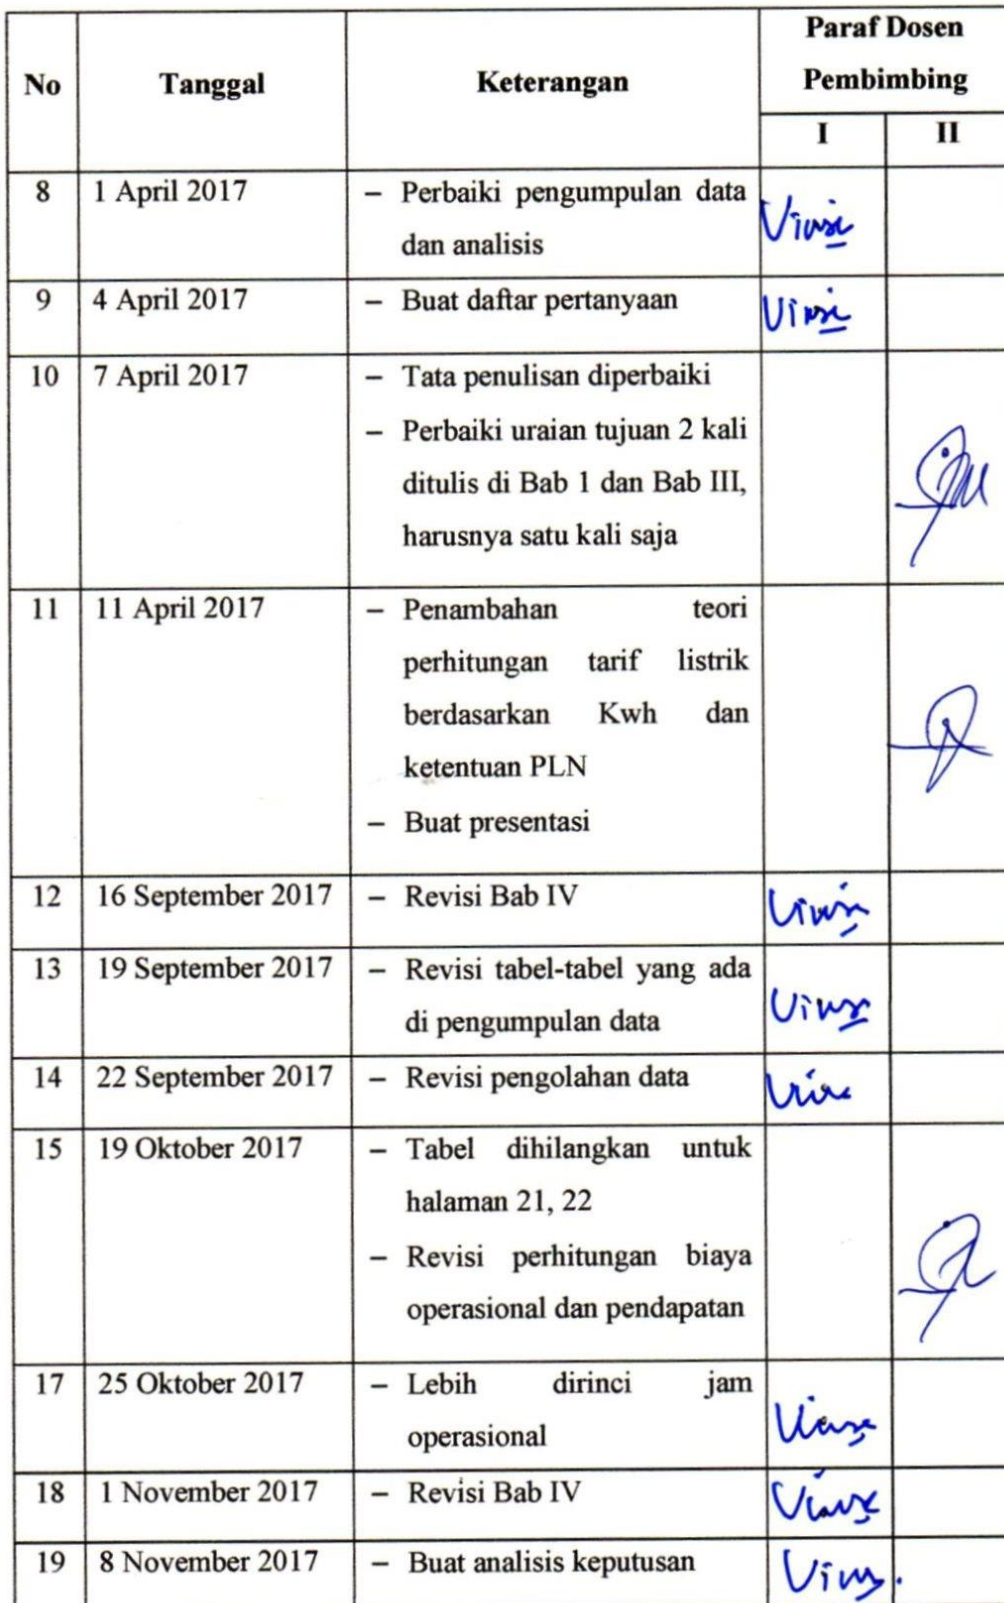 No Tanggal Keterangan Paraf Dosen
Pembimbing
I II
8 1 April 2017 – Perbaiki pengumpulan data
dan analisis
9 4 April 2017 – Buat daftar pertanyaan
10 7 April 2017 – Tata penulisan diperbaiki
– Perbaiki uraian tujuan 2 kali
ditulis di Bab 1 dan Bab III,
harusnya satu kali saja
11 11 April 2017 – Penambahan teori
perhitungan tarif listrik
berdasarkan Kwh dan
ketentuan PLN
– Buat presentasi
12 16 September 2017 – Revisi Bab IV
13 19 September 2017 – Revisi tabel-tabel yang ada
di pengumpulan data
14 22 September 2017 – Revisi pengolahan data
15 19 Oktober 2017 – Tabel dihilangkan untuk
halaman 21, 22
– Revisi perhitungan biaya
operasional dan pendapatan
17 25 Oktober 2017 – Lebih dirinci jam
operasional
18 1 November 2017 – Revisi Bab IV
19 8 November 2017 – Buat analisis keputusan